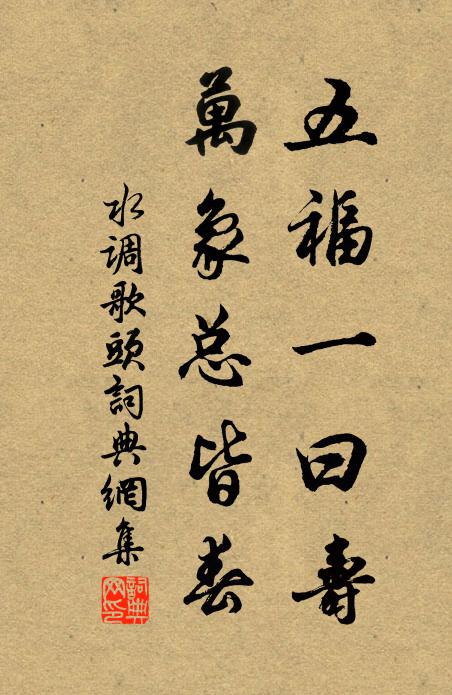 五福一曰壽
萬象总皆春
水调歌頭詞典網集
詞典
网印